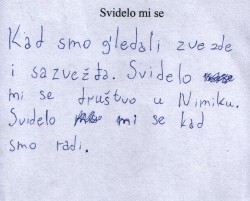 Svidelo mi se
Kad smo gledali zvezde
i sazvežđa. Svidelo
mi se društvo u Nimiku.
Svidelo mi se kad
smo radi.